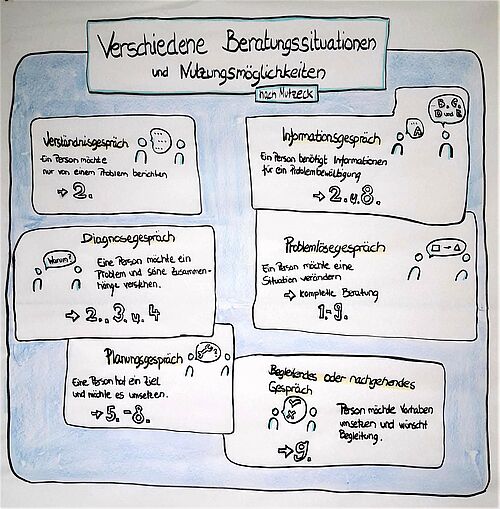 Verschiedene Beratungssituationen
und Nutzungsmöglichkeiten
nach Mutzeck
Verständnisgespräch
Ein Person möchte
nur von einem Problem berichten
⇒ 2.
Informationsgespräch
A
B, C,
D und E
Ein Person benötigt Informationen
für ein Problembewältigung
⇒ 2. u. 8.
Diagnosegespräch
Warum?
Eine Person möchte ein
Problem und seine Zusammen-
hänge verstehen.
⇒ 2., 3. u. 4
Problemlösegespräch
Ein Person möchte eine
Situation verändern
⇒ komplette Beratung
1.-9.
Planungsgespräch
?
Eine Person hat ein Ziel
und möchte es umsetzen.
⇒ 5.-8.
Begleitendes oder nachgehendes
Gespräch
Person möchte Vorhaben
umsetzen und wünscht
Begleitung.
⇒ 9.